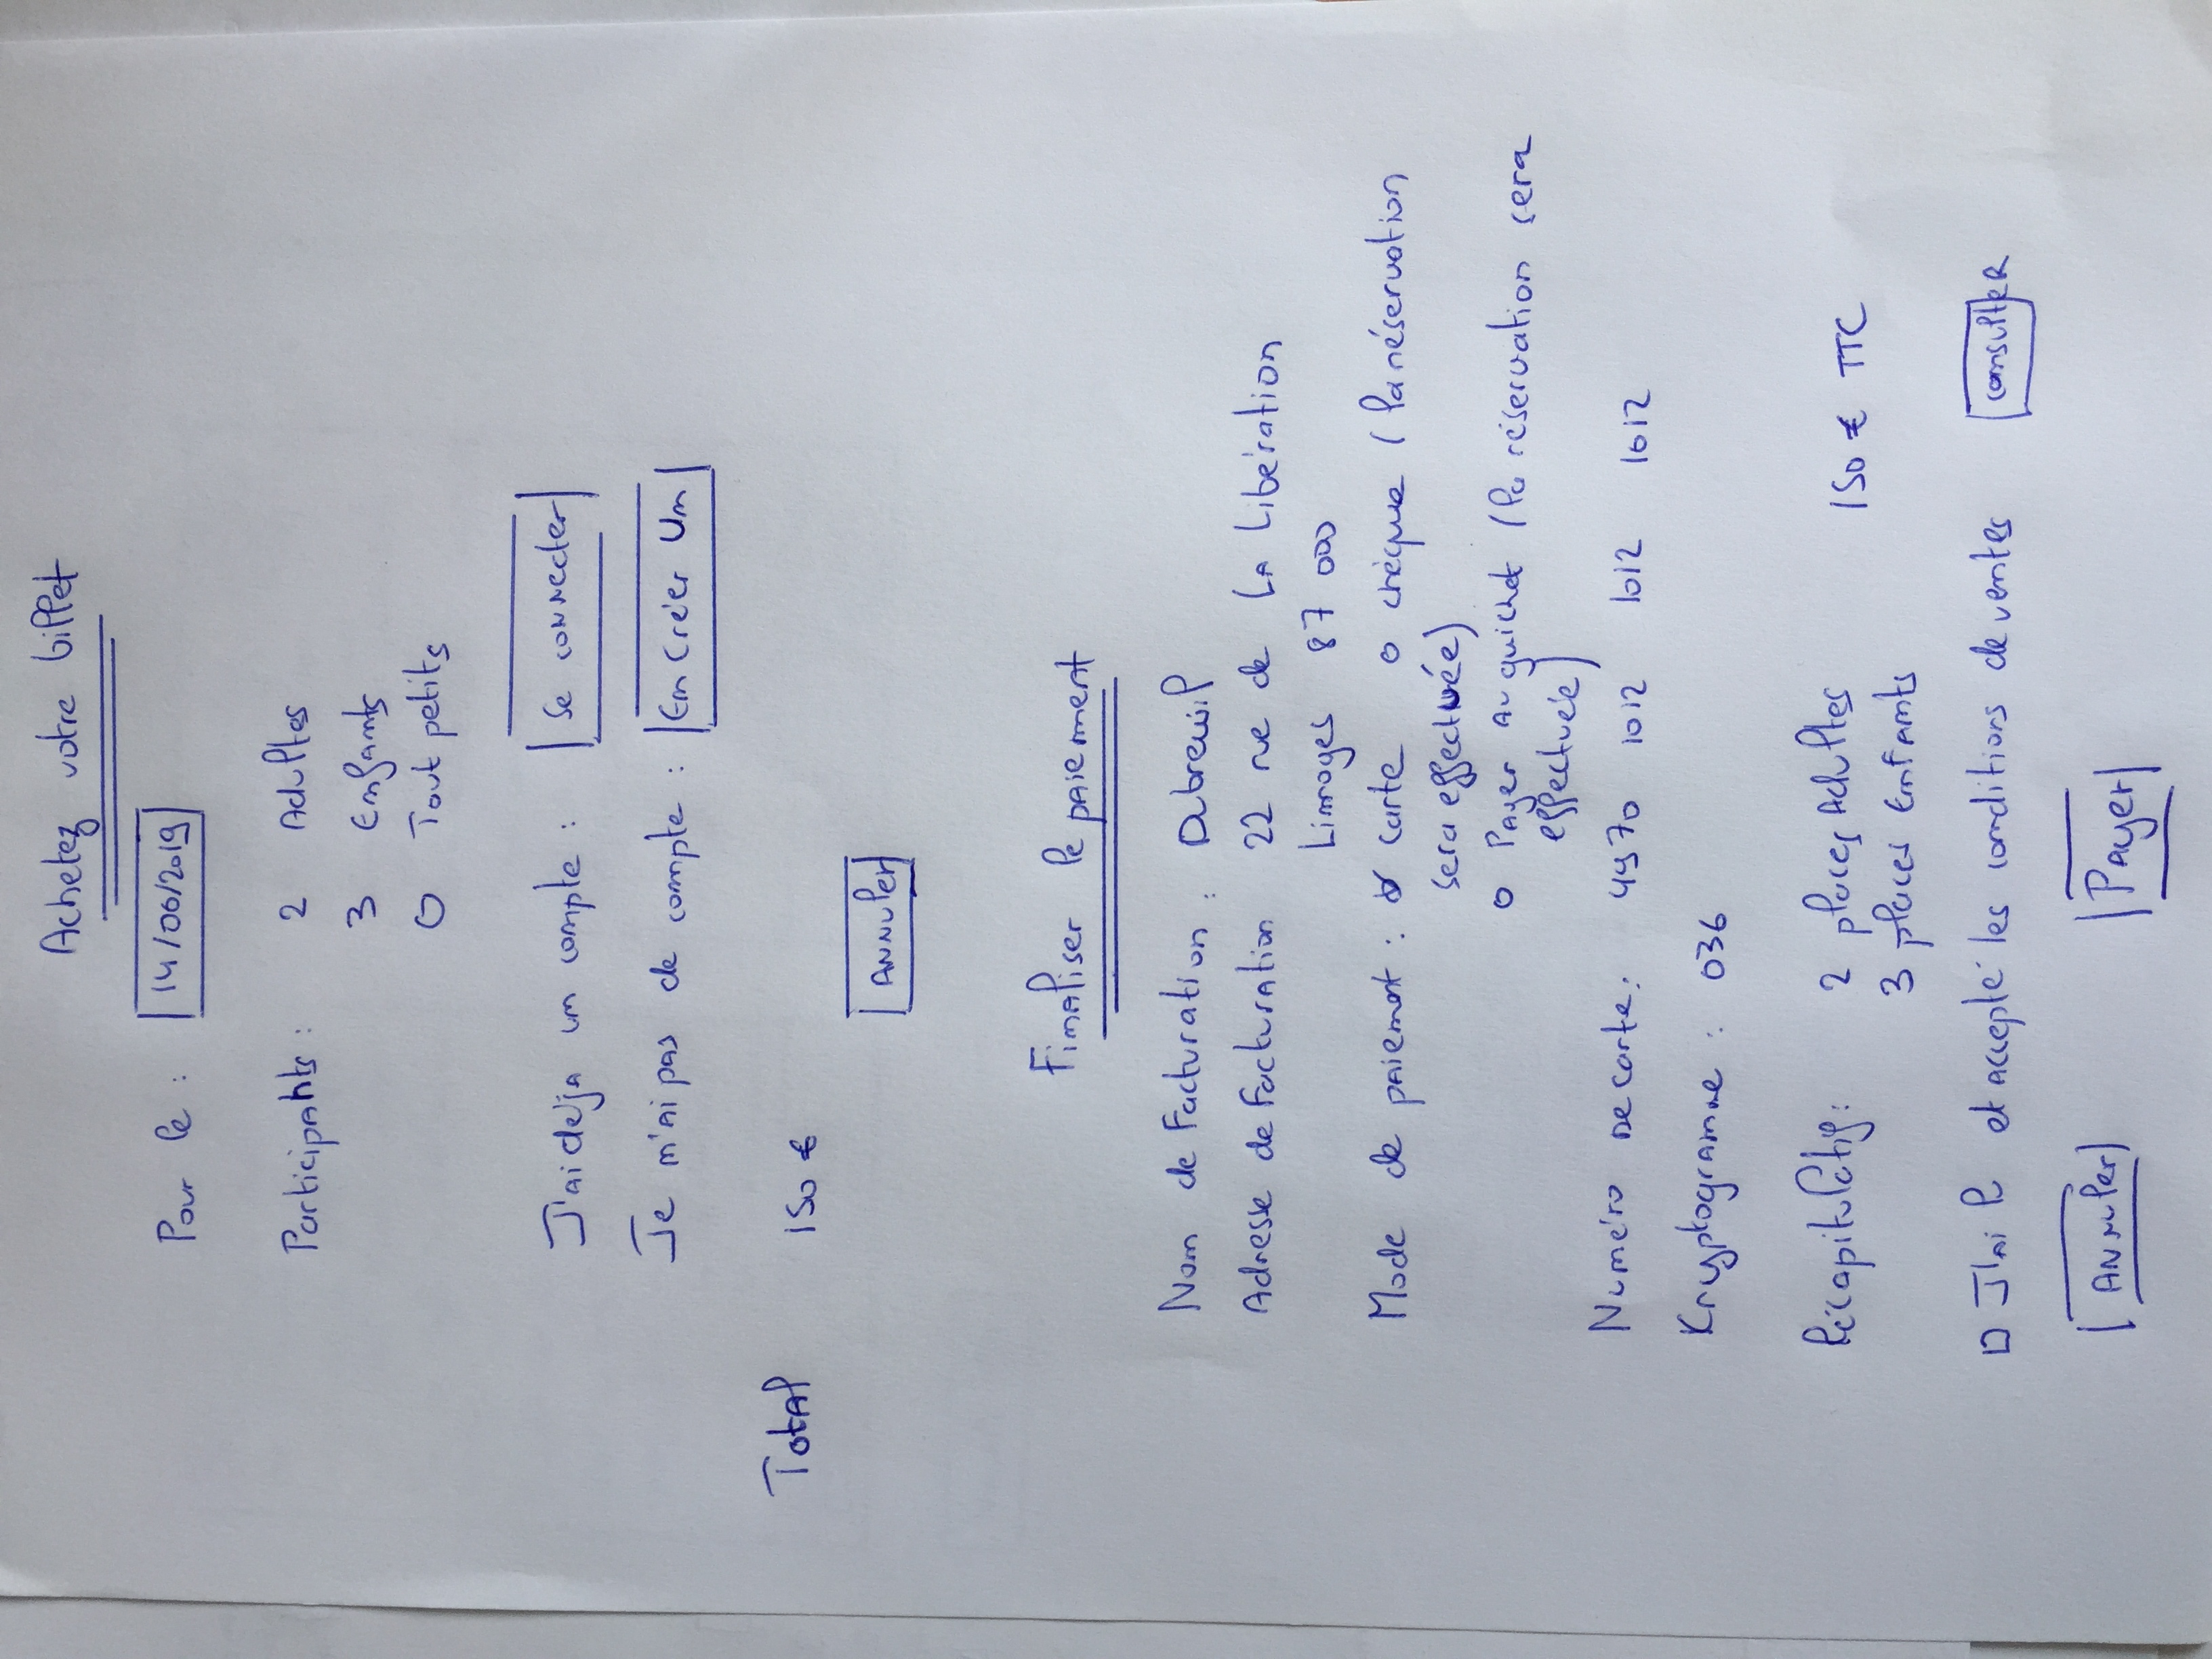 Achetez votre billet
Pour le : 14/06/2019
Participants : 2 Adultes
3 Enfants
0 Tout petits
J'ai déjà un compte : Se connecter
Je n'ai pas de compte : En Créer Un
Total 150 €
Annuler
Finaliser le paiement
Nom de Facturation : Dubreuil
Adresse de Facturation 22 rue de La Libération
Limoges 87 000
Mode de paiement : carte o chèque (la réservation
sera effectuée)
o Payer Au guichet (la réservation sera
effectuée)
Numéro De carte : 4970 1012 1012 1012
Kryptogramme : 036
Récapitulatif : 2 places Adultes 150 € TTC
3 places Enfants
□ J'ai lu et accepté les conditions de ventes consulter
Annuler Payer